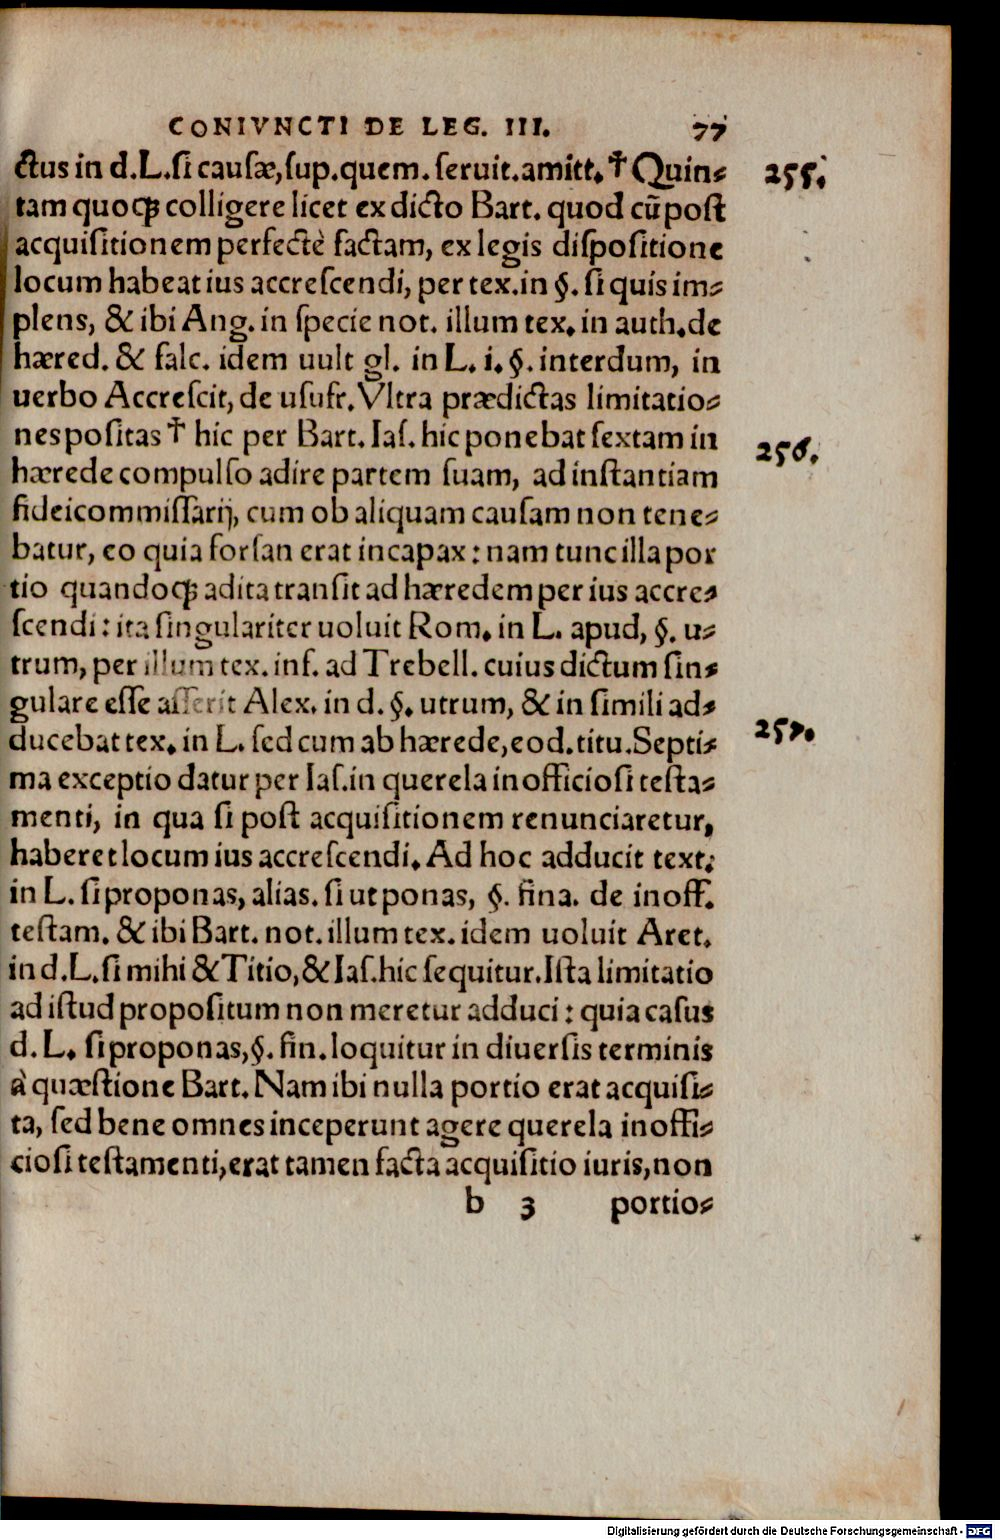 CONIVNCTI DE LEG. III. 77
ctus in d.L. si causæ, sup. quem. seruit. amitt. † Quin- 255.
tam quoq; colligere licet ex dicto Bart. quod cũ post
acquisitionem perfectè factam, ex legis dispositione
locum habeat ius accrescendi, per tex. in §. si quis im-
plens, & ibi Ang. in specie not. illum tex. in auth. de
hæred. & falc. idem uult gl. in L. i. §. interdum, in
uerbo Accrescit, de usufr. Vltra prædictas limitatio-
nes positas † hic per Bart. Ias. hic ponebat sextam in 256.
hærede compulso adire partem suam, ad instantiam
fideicommissarij, cum ob aliquam causam non tene-
batur, eo quia forsan erat incapax : nam tunc illa por
tio quandoq; adita transit ad hæredem per ius accre-
scendi : ita singulariter uoluit Rom. in L. apud, §. u-
trum, per illum tex. inf. ad Trebell. cuius dictum sin-
gulare esse asserit Alex. in d. §. utrum, & in simili ad-
ducebat tex. in L. sed cum ab hærede, eod. titu. Septi- 257.
ma exceptio datur per Ias. in querela inofficiosi testa-
menti, in qua si post acquisitionem renunciaretur,
haberet locum ius accrescendi. Ad hoc adducit text.
in L. si proponas, alias. si ut ponas, §. fina. de inoff.
testam. & ibi Bart. not. illum tex. idem uoluit Aret.
in d. L. si mihi & Titio, & Ias. hic sequitur. Ista limitatio
ad istud propositum non meretur adduci : quia casus
d. L. si proponas, §. fin. loquitur in diuersis terminis
à quæstione Bart. Nam ibi nulla portio erat acquisi-
ta, sed bene omnes inceperunt agere querela inoffi-
ciosi testamenti, erat tamen facta acquisitio iuris, non
b 3 portio-
Digitalisierung gefördert durch die Deutsche Forschungsgemeinschaft - DFG